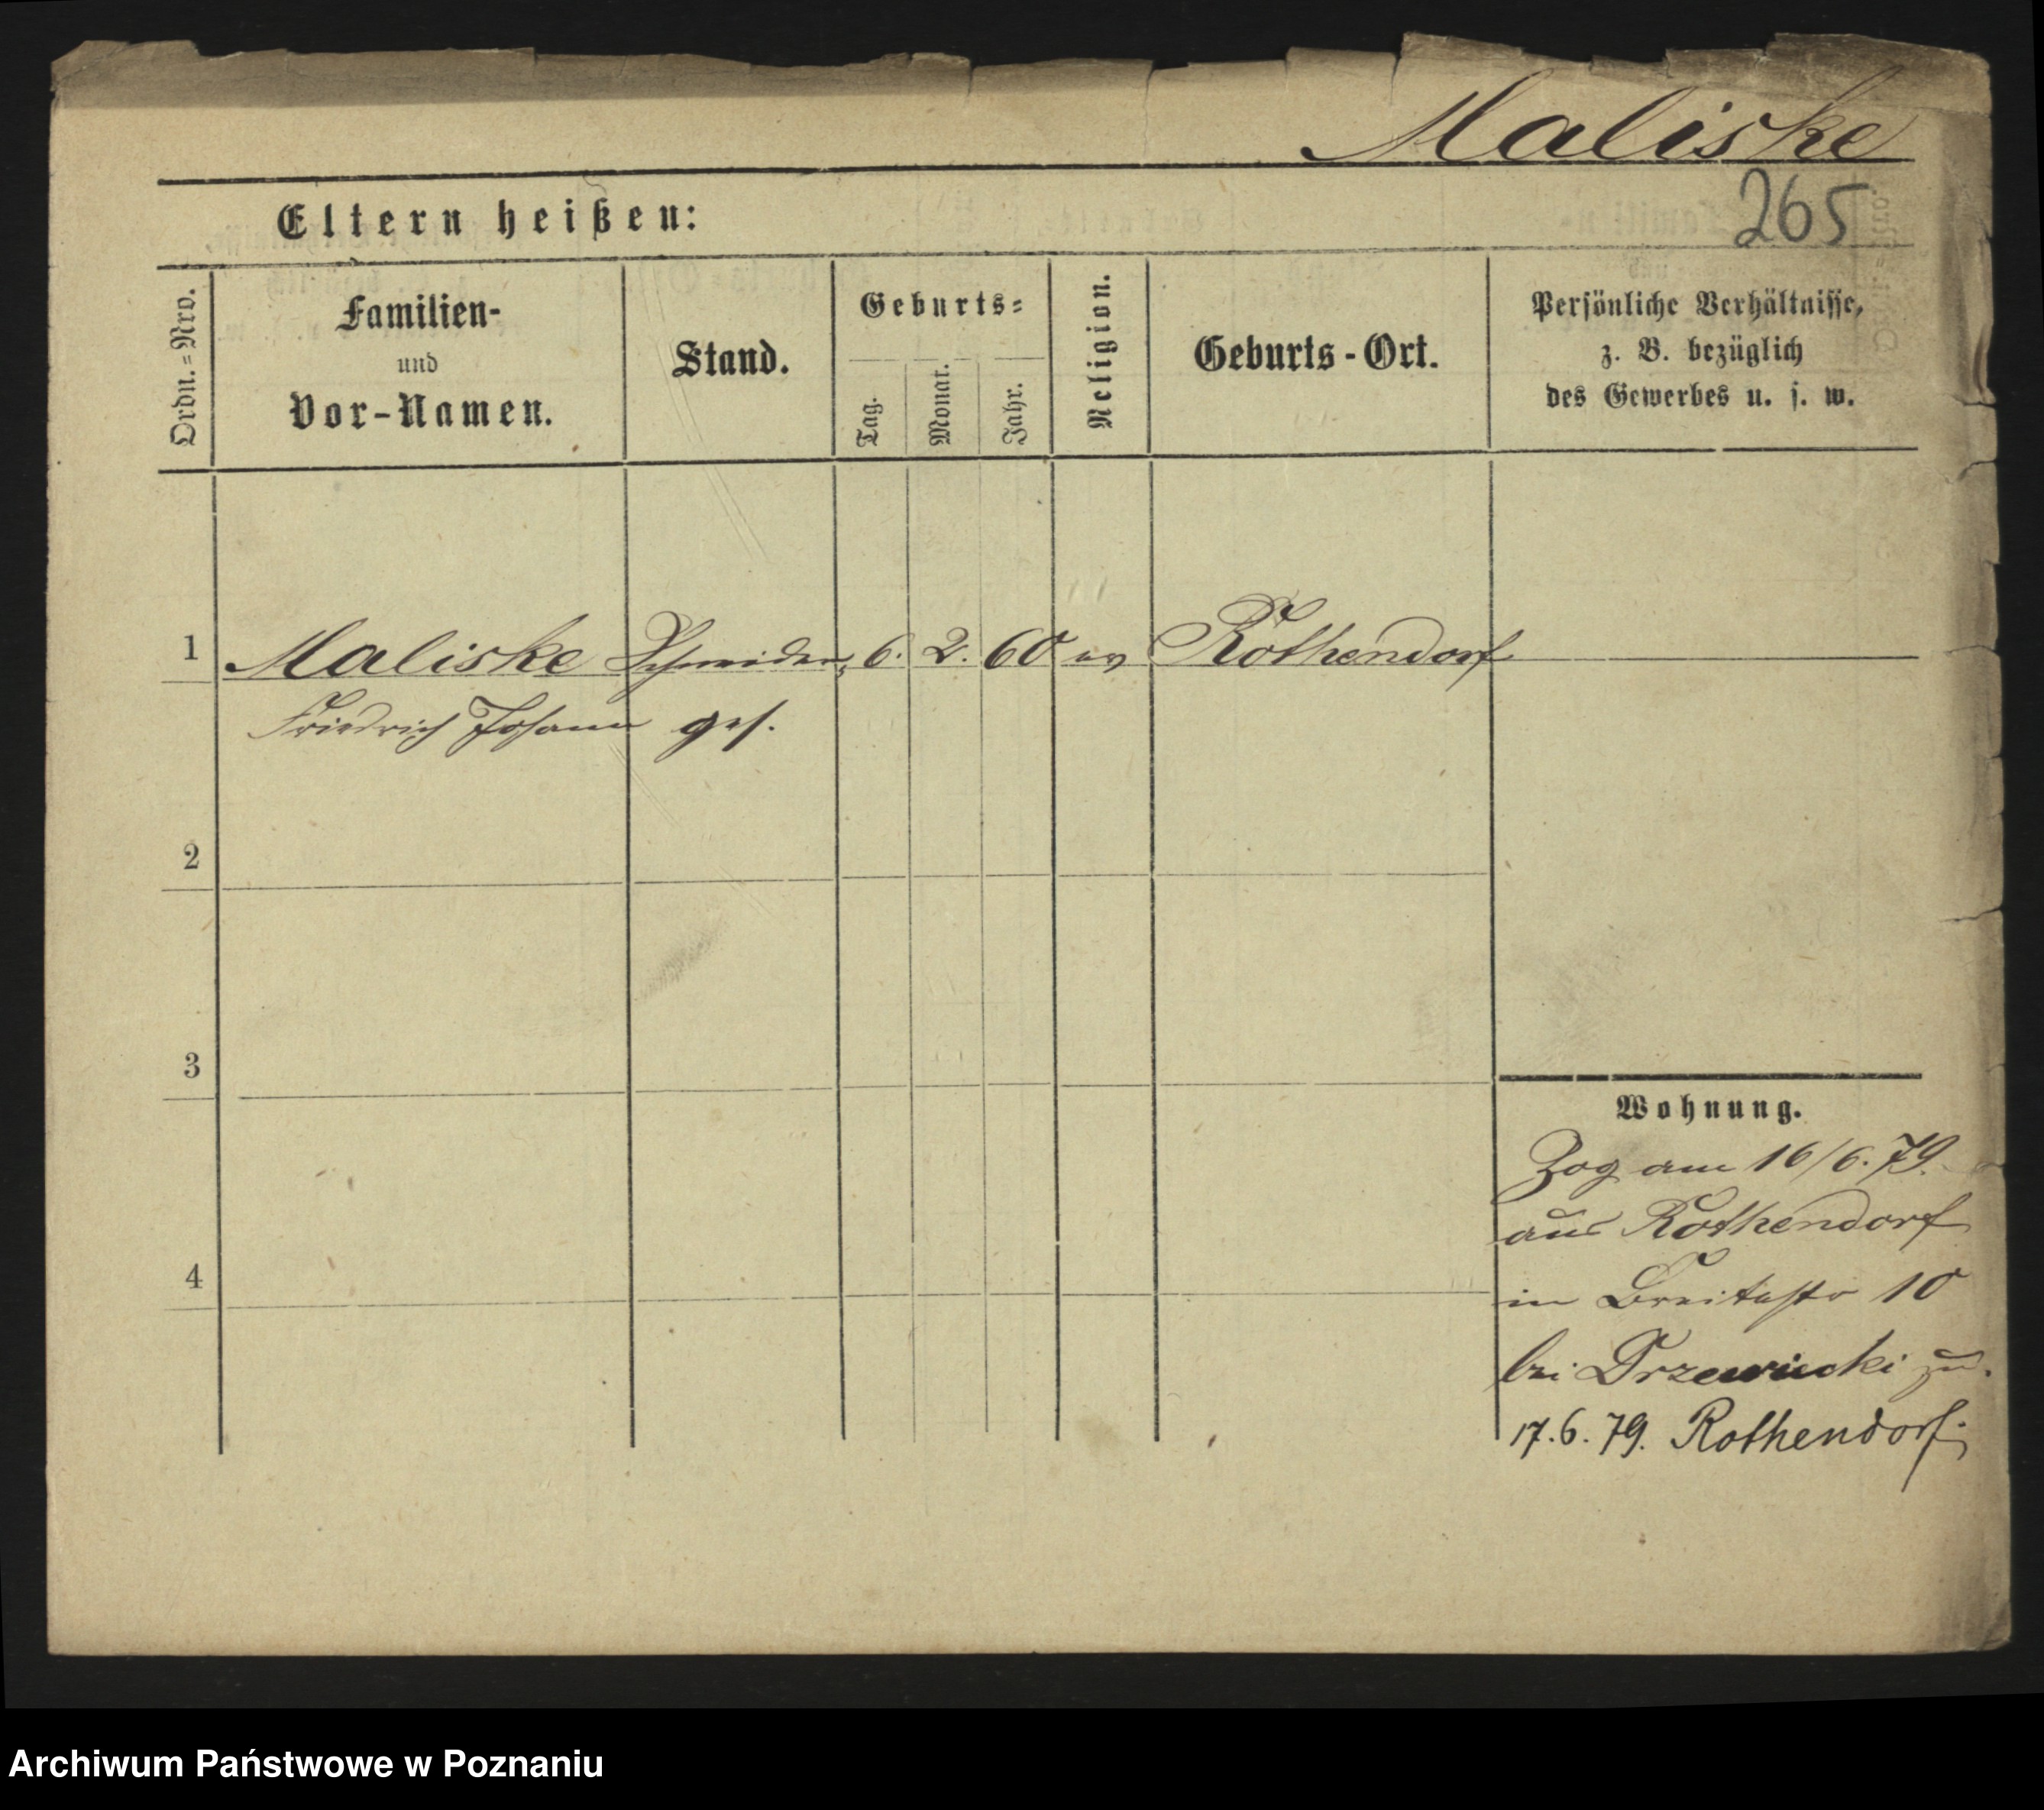 Maliske
265
Eltern heißen:
Ordn.=Nro.
Familien-
und
Vor-Namen.
Stand.
Geburts=
Tag.
Monat.
Jahr.
Religion.
Geburts-Ort.
Persönliche Verhältnisse,
z. B. bezüglich
des Gewerbes u. s. w.
1 Maliske Schneider 6. 2. 60 ev Rothendorf
Friedrich Johann ges.
2
3
4
Wohnung.
Zog am 16/6.79.
aus Rothendorf
in Breitestr 10
bei Drzewiecki zu.
17.6.79. Rothendorf.
Archiwum Państwowe w Poznaniu